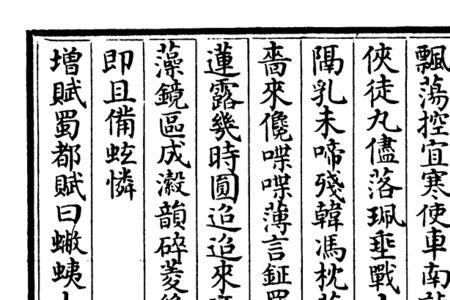 飄蕩控宜寒使車南
俠徒丸儘落珮垂戰
隔乳未啼殘韓馮枕
嗇來儳喋喋薄言鉦
蓮露幾時圓迢迢來
藻鏡區成瀔韻碎菱
即且備蚿憐
增賦蜀都賦曰蠍蛦